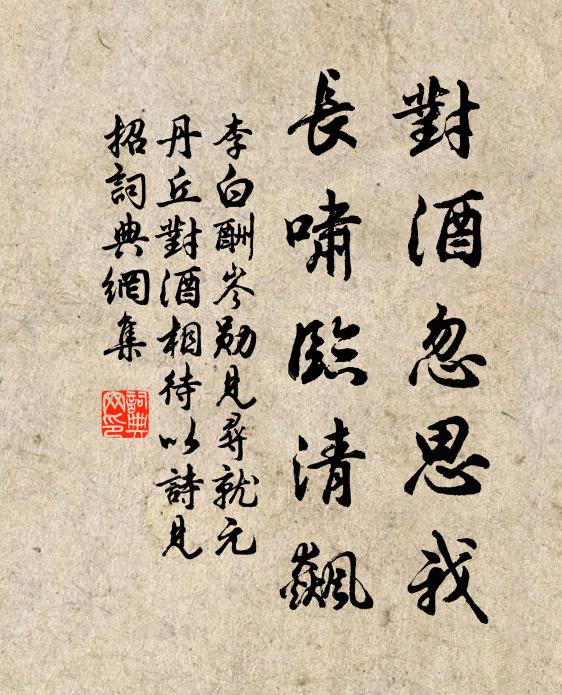 對酒忽思我
長嘯臨清飆
李白酬岑勛見尋就元
丹丘對酒相待以詩見
招詞典網集
詞典
网印